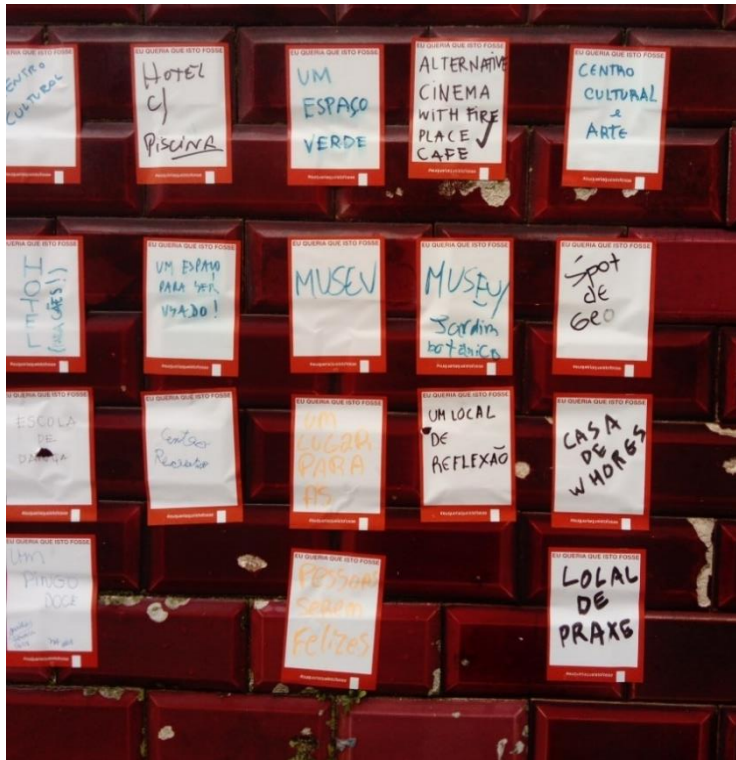 EU QUERIA QUE ISTO FOSSE
CENTRO
CULTURAL
EU QUERIA QUE ISTO FOSSE
HOTEL
C/
PISCINA
EU QUERIA QUE ISTO FOSSE
UM
ESPAÇO
VERDE
EU QUERIA QUE ISTO FOSSE
ALTERNATIVE
CINEMA
WITH FIRE
PLACE
CAFE
EU QUERIA QUE ISTO FOSSE
CENTRO
CULTURAL
e
ARTE
EU QUERIA QUE ISTO FOSSE
HOTEL
EU QUERIA QUE ISTO FOSSE
UM ESPAÇO
PARA SER
USADO!
EU QUERIA QUE ISTO FOSSE
MUSEU
EU QUERIA QUE ISTO FOSSE
MUSEU/
Jardim
botânico
EU QUERIA QUE ISTO FOSSE
Spot
de
GEO
EU QUERIA QUE ISTO FOSSE
ESCOLA
DE
DANÇA
EU QUERIA QUE ISTO FOSSE
Centro
EU QUERIA QUE ISTO FOSSE
UM
LUGAR
PARA
AS
EU QUERIA QUE ISTO FOSSE
UM LOCAL
DE
REFLEXÃO
EU QUERIA QUE ISTO FOSSE
CASA
DE
WHORES
EU QUERIA QUE ISTO FOSSE
UM
PINGO
DOCE
EU QUERIA QUE ISTO FOSSE
PESSOAS
SEREM
FELIZES
EU QUERIA QUE ISTO FOSSE
LOCAL
DE
PRAXE